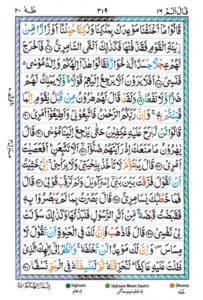 قَالَ اَلَمْ ١٦ ٣١٩ طٰهٰ ٢٠
قَالُوْا مَآ اَخْلَفْنَا مَوْعِدَكَ بِمَلْكِنَا وَلٰكِنَّا حُمِّلْنَآ اَوْزَارًا مِّنْ
زِيْنَةِ الْقَوْمِ فَقَذَفْنٰهَا فَكَذٰلِكَ اَلْقَى السَّامِرِيُّ فَاَخْرَجَ
لَهُمْ عِجْلًا جَسَدًا لَّهٗ خُوَارٌ فَقَالُوْا هٰذَآ اِلٰهُكُمْ وَاِلٰهُ مُوْسٰى
فَنَسِيَ اَفَلَا يَرَوْنَ اَلَّا يَرْجِعُ اِلَيْهِمْ قَوْلًا وَّلَا يَمْلِكُ لَهُمْ
ضَرًّا وَّلَا نَفْعًا وَلَقَدْ قَالَ لَهُمْ هٰرُوْنُ مِنْ قَبْلُ يٰقَوْمِ اِنَّمَا
فُتِنْتُمْ بِهٖ وَاِنَّ رَبَّكُمُ الرَّحْمٰنُ فَاتَّبِعُوْنِيْ وَاَطِيْعُوْٓا اَمْرِيْ
قَالُوْا لَنْ نَّبْرَحَ عَلَيْهِ عٰكِفِيْنَ حَتّٰى يَرْجِعَ اِلَيْنَا مُوْسٰى قَالَ
يٰهٰرُوْنُ مَا مَنَعَكَ اِذْ رَاَيْتَهُمْ ضَلُّوْٓا اَلَّا تَتَّبِعَنِ اَفَعَصَيْتَ
اَمْرِيْ قَالَ يَبْنَؤُمَّ لَا تَاْخُذْ بِلِحْيَتِيْ وَلَا بِرَاْسِيْ اِنِّيْ خَشِيْتُ
اَنْ تَقُوْلَ فَرَّقْتَ بَيْنَ بَنِيْٓ اِسْرَآءِيْلَ وَلَمْ تَرْقُبْ قَوْلِيْ قَالَ
فَمَا خَطْبُكَ يٰسَامِرِيُّ قَالَ بَصُرْتُ بِمَا لَمْ يَبْصُرُوْا بِهٖ
فَقَبَضْتُ قَبْضَةً مِّنْ اَثَرِ الرَّسُوْلِ فَنَبَذْتُهَا وَكَذٰلِكَ سَوَّلَتْ
لِيْ نَفْسِيْ قَالَ فَاذْهَبْ فَاِنَّ لَكَ فِي الْحَيٰوةِ اَنْ تَقُوْلَ لَا
مِسَاسَ وَاِنَّ لَكَ مَوْعِدًا لَّنْ تُخْلَفَهٗ وَانْظُرْ اِلٰٓى اِلٰهِكَ الَّذِيْ
ظَلْتَ عَلَيْهِ عَاكِفًا لَنُحَرِّقَنَّهٗ ثُمَّ لَنَنْسِفَنَّهٗ فِي الْيَمِّ نَسْفًا
Idghaam Idghaam Meem Saakin Ghunna